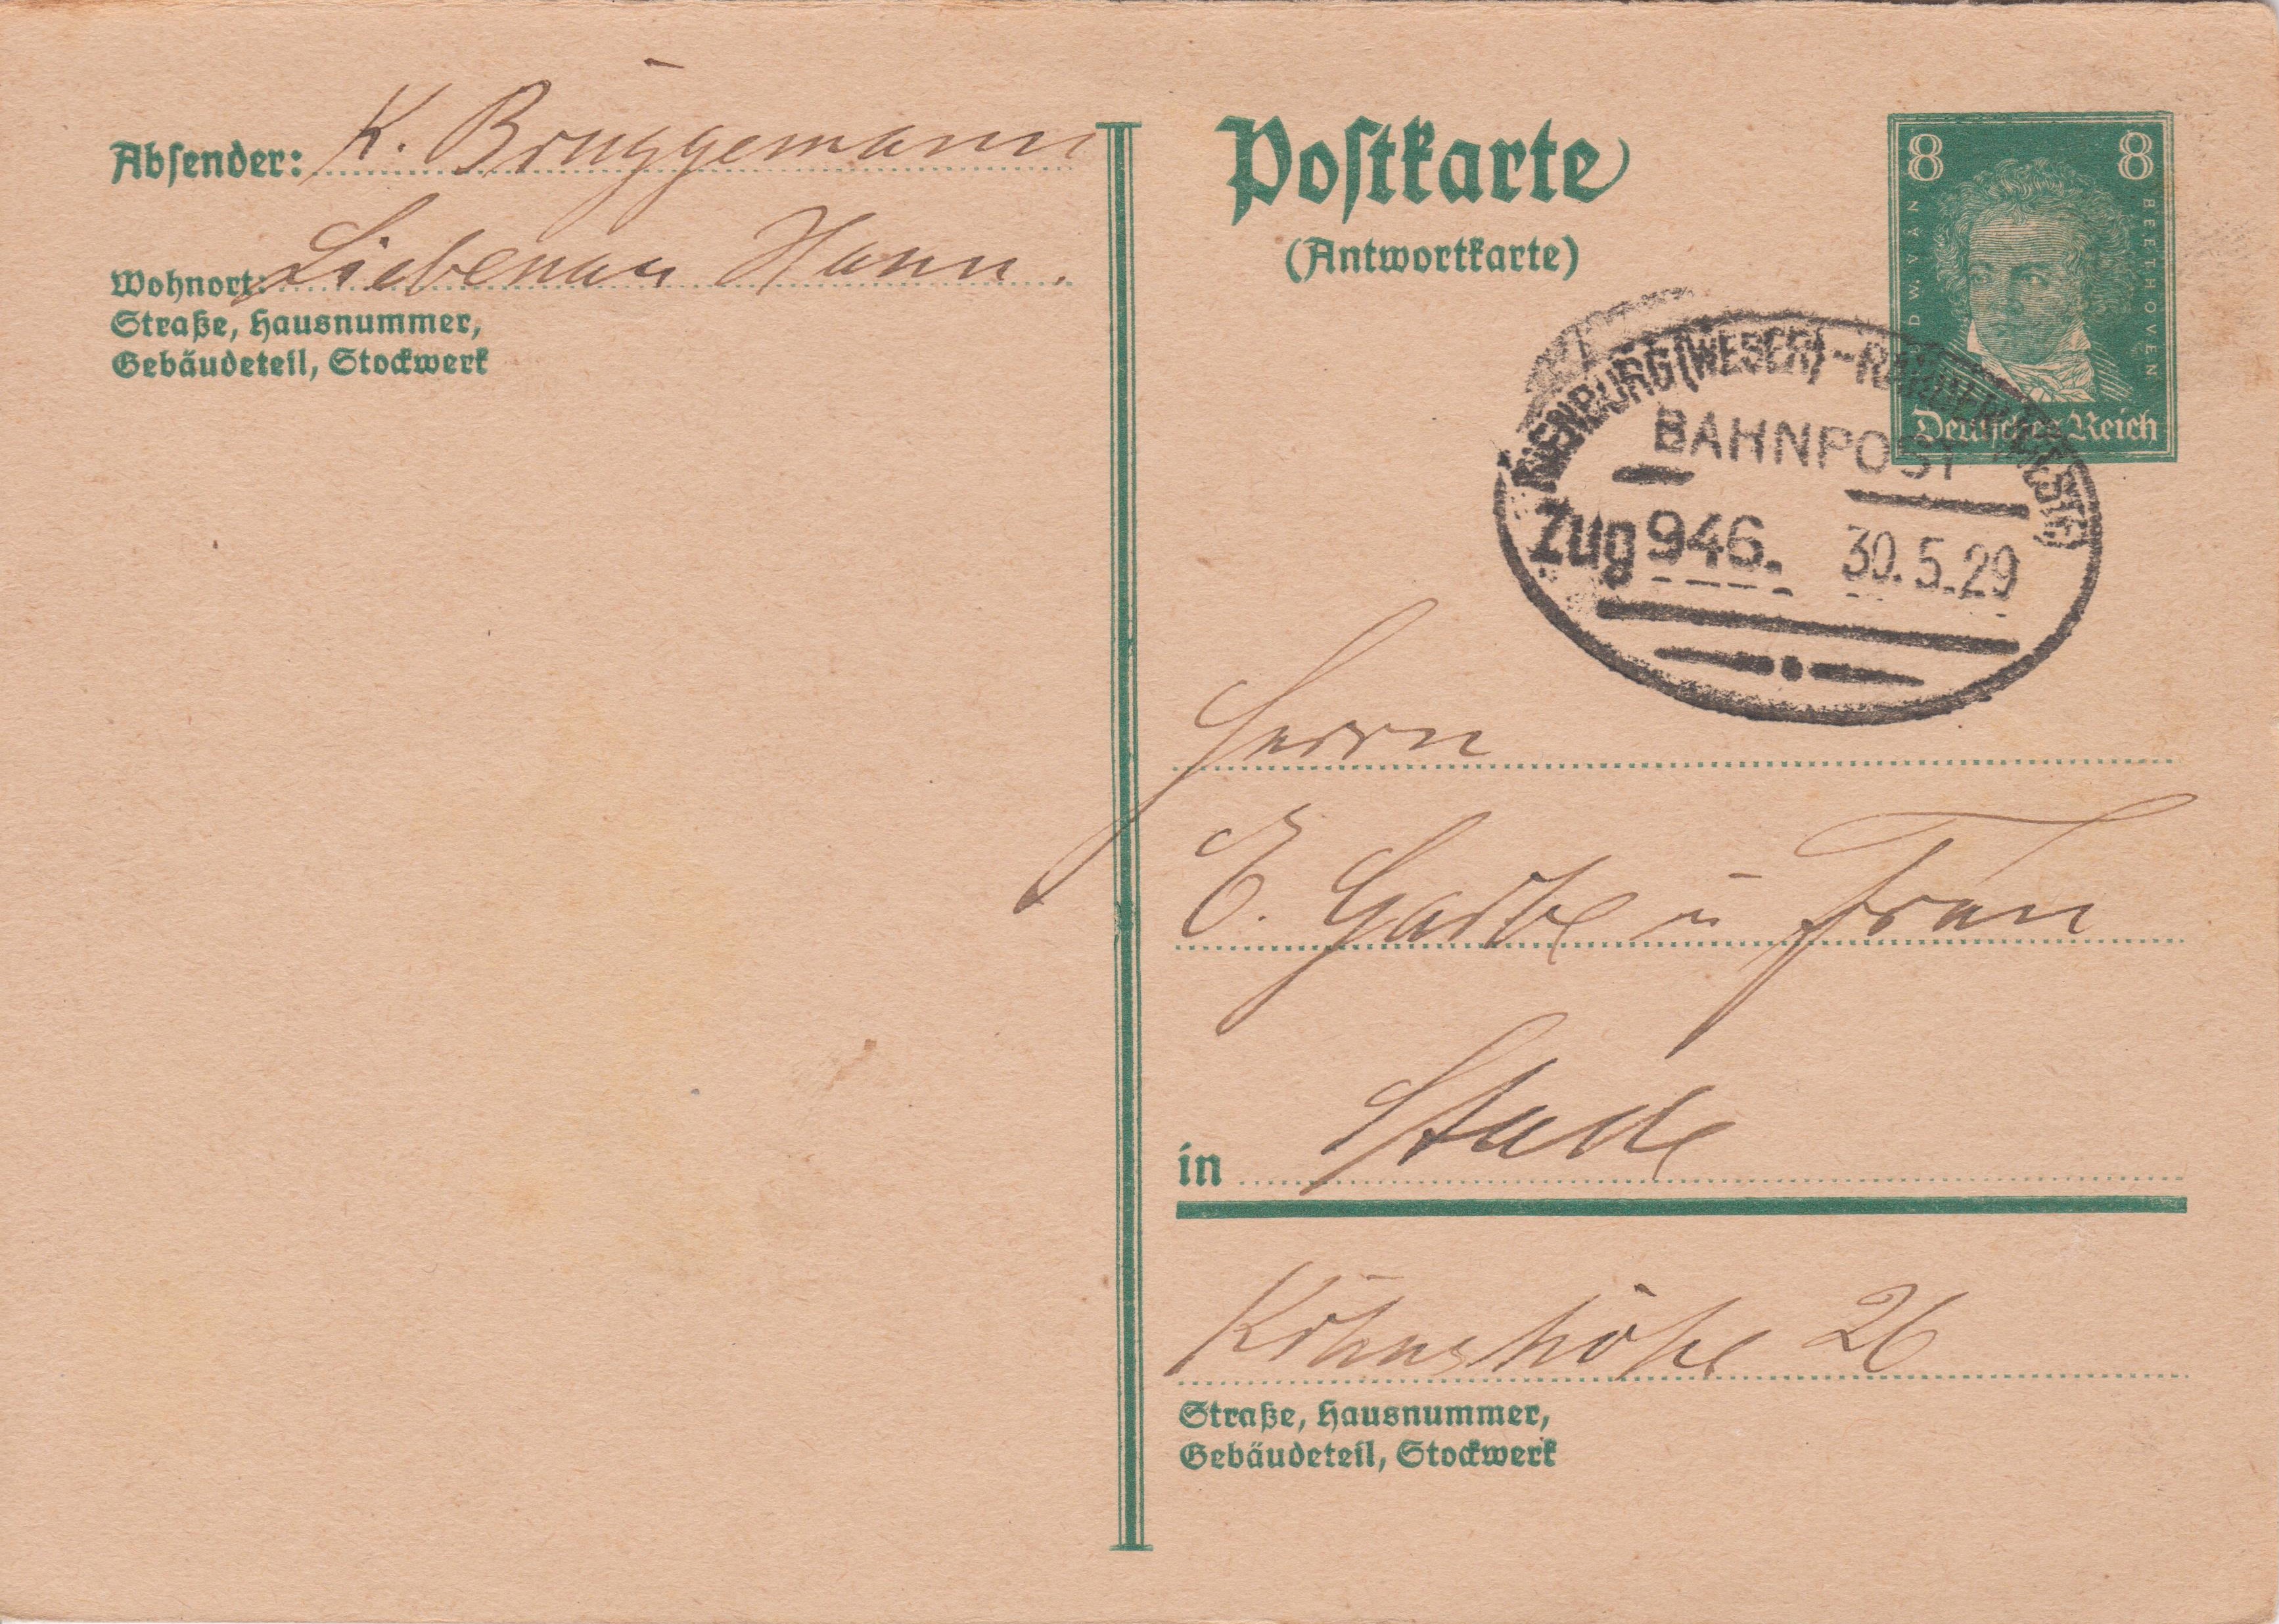 Absender: K. Brüggemann
Wohnort: Liebenau Hann.
Straße, Hausnummer,
Gebäudeteil, Stockwerk
Postkarte
(Antwortkarte)
8 8
L. V. VAN BEETHOVEN
Deutsches Reich
NIENBURG (WESER) - RAHDEN (WESTF)
BAHNPOST
Zug 946. 30.5.29
Herrn
E. Garbe u Frau
in Stade
26
Straße, Hausnummer,
Gebäudeteil, Stockwerk